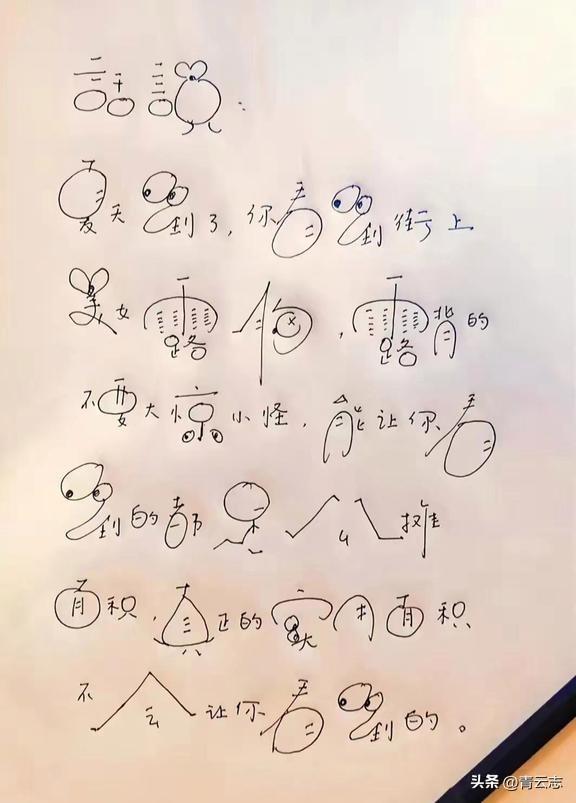 話說：
夏天到了，你看到街上
美女露胸，露背的
不要大惊小怪，能让你看
到的都是公摊
面积，真正的实用面积
不会让你看到的。
头条 @青云志